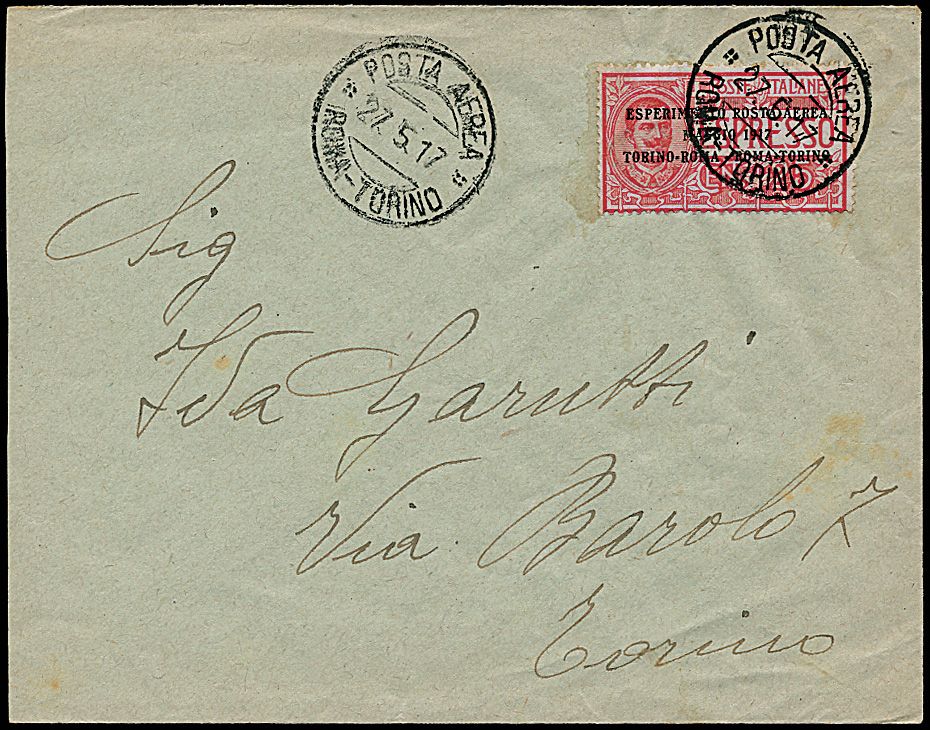 " POSTA AEREA "
27.5.17
ROMA-TORINO
" POSTA AEREA "
27.5.17
ROMA-TORINO
POSTE ITALIANE
ESPRESSO
ESPERIMENTO POSTA AEREA
MAGGIO 1917
TORINO-ROMA · ROMA-TORINO
Sig
Ida Garutti
Via Barolo 7
Torino